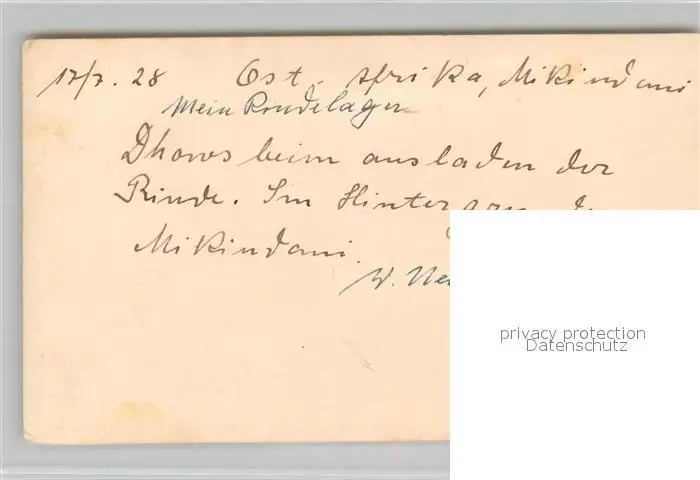 17/7. 28 Ost-Afrika, Mikindani
Mein Rindelager
Dhows beim ausladen der
Rinde. Im Hintergrund
Mikindani.
W.
privacy protection
Datenschutz